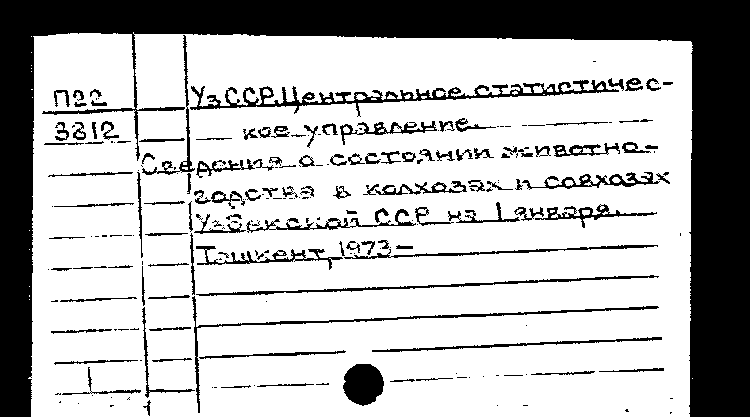 П22
УзССР.Центральное статистичес-
3812
кое управление.
Сведения о состоянии животно-
водства в колхозах и совхозах
Узбекской ССР на 1 января.
Ташкент, 1973-